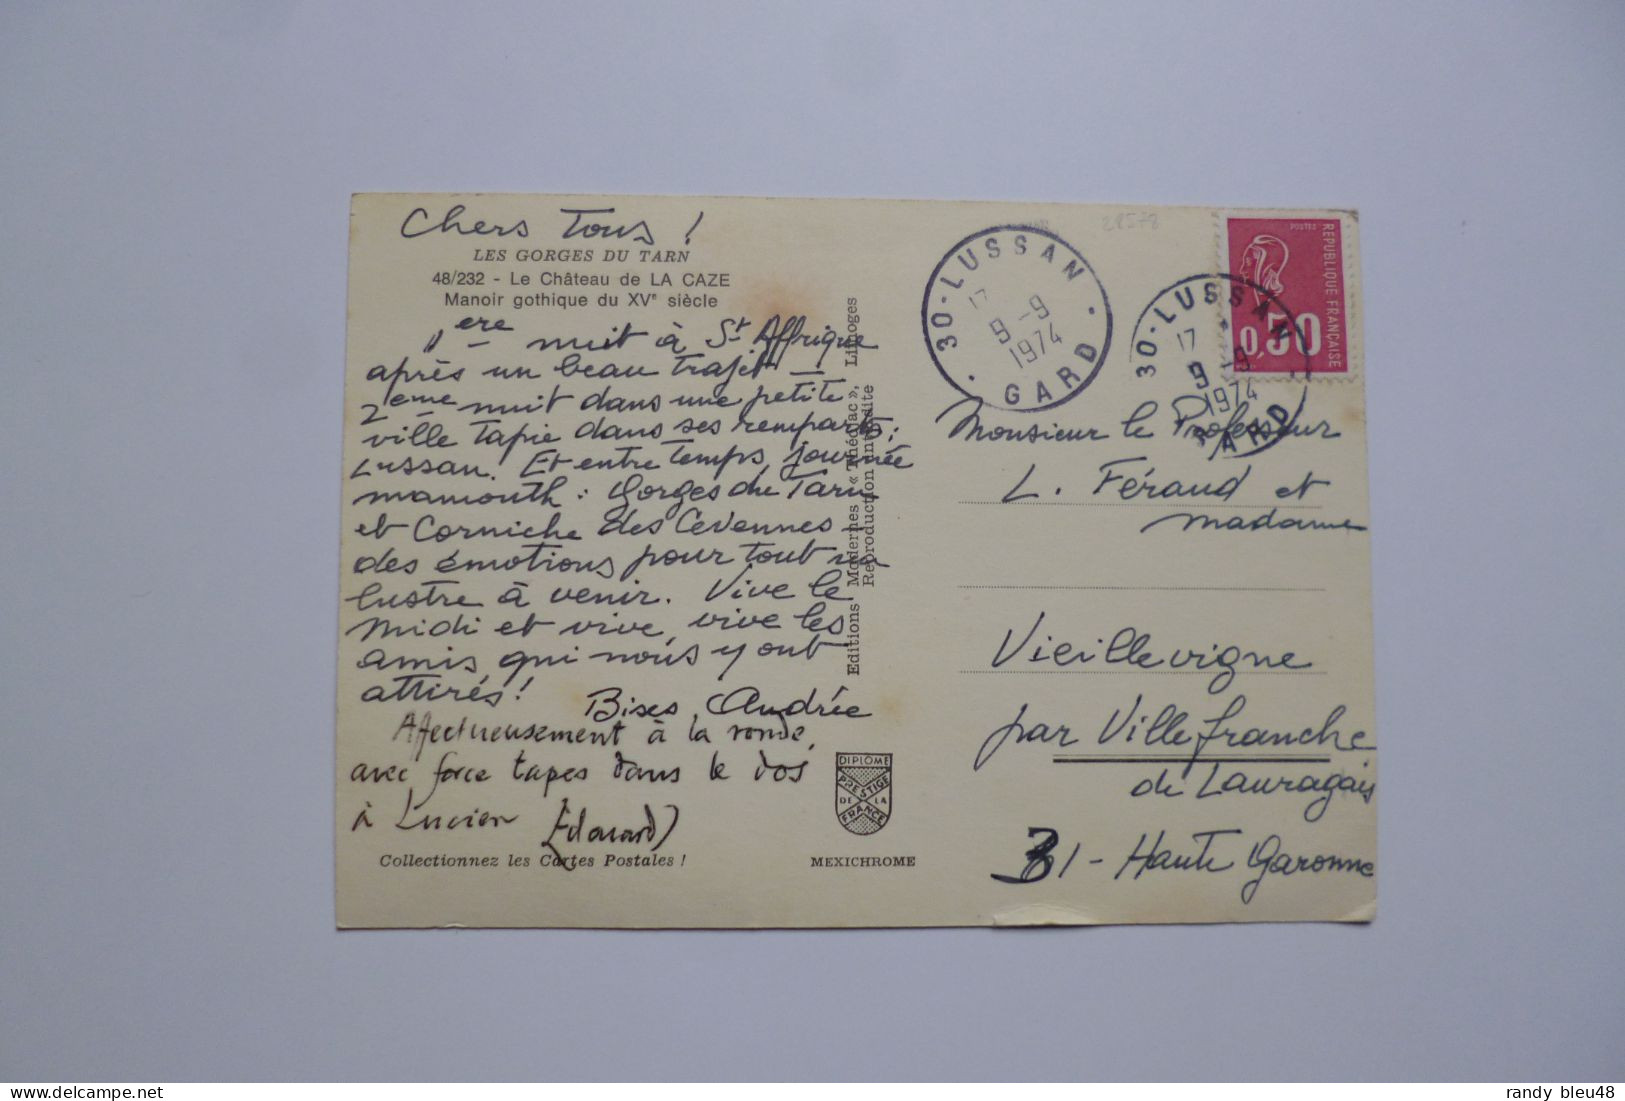 Chers Tous !
LES GORGES DU TARN
48/232 - Le Château de LA CAZE
Manoir gothique du XVe siècle
1ere nuit à St Affrique
après un beau trajet -
2eme nuit dans une petite
ville tapie dans ses remparts :
Lussan. Et entre temps, journée
mamouth : Gorges du Tarn
et Corniche des Cévennes -
des émotions pour tout un
lustre à venir. Vive le
midi et vive, vive les
amis qui nous y ont
attirés !
Bises, Andrée
Affectueusement à la ronde,
avec force tapes dans le dos
à Lucien Edouard
Collectionnez les Cartes Postales !
Editions Modernes « Théojac », Limoges
Reproduction interdite
DIPLOME
PRESTIGE
DE LA
FRANCE
MEXICHROME
28578
30-LUSSAN
17
9-9
1974
GARD
30-LUSSAN
17
9-9
1974
GARD
POSTES
REPUBLIQUE FRANÇAISE
0,50
Monsieur le Professeur
L. Féraud et
madame
Vieillevigne
par Villefranche
de Lauragais
31 - Haute Garonne
randy bleu48